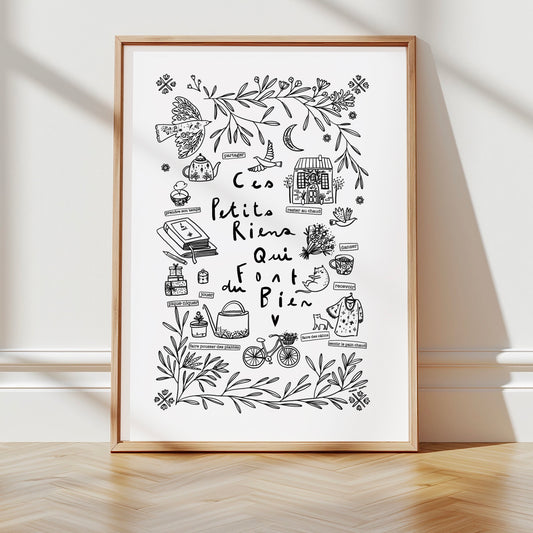 partager
Ces
Petits
Riens
Qui
Font
du Bien
prendre son temps
rester au chaud
danser
recevoir
jouer
pique-niquer
faire pousser des plantes
faire des câlins
sentir le pain chaud